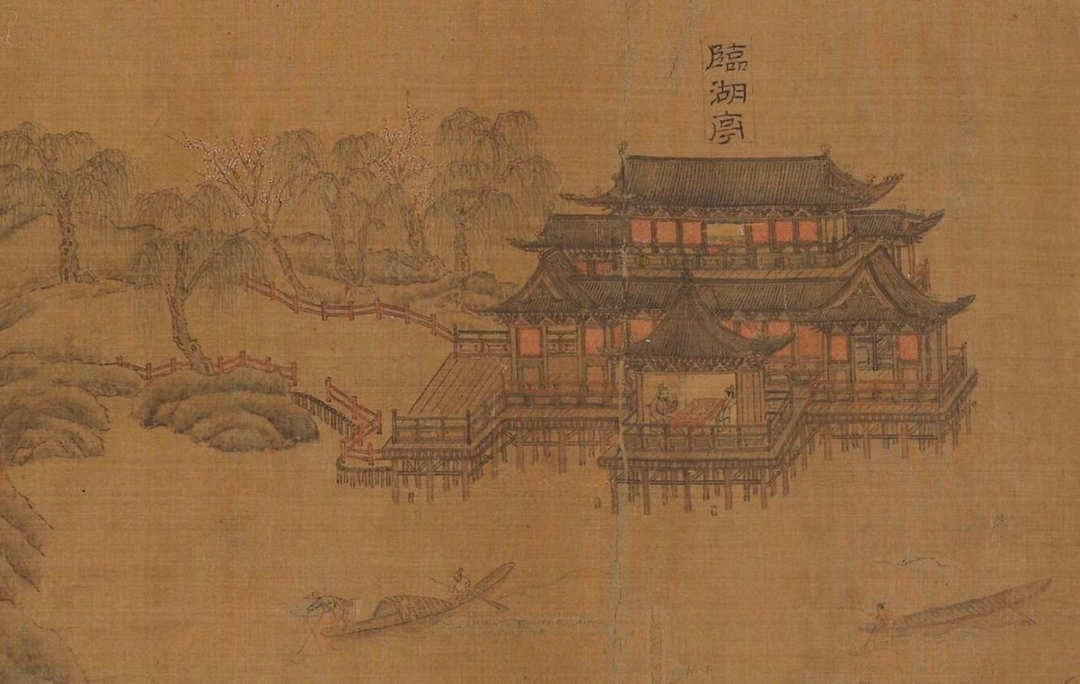 臨湖亭